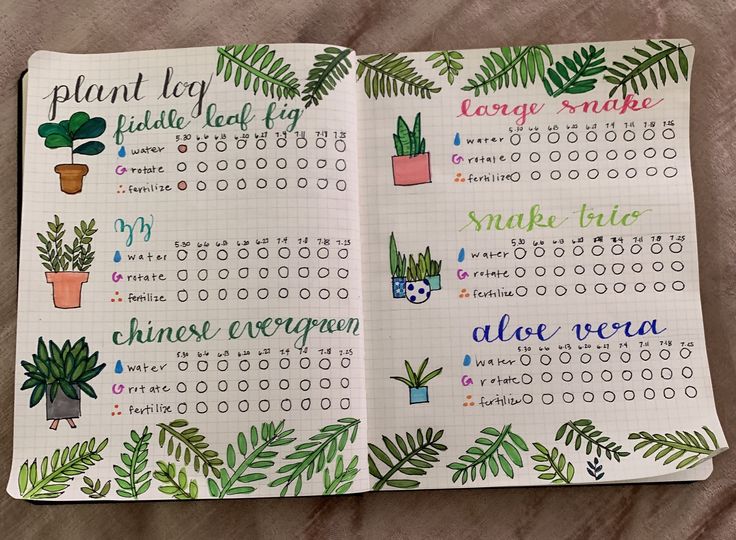 plant log
fiddle leaf fig
5.30 6.6 6.13 6.20 6.27 7.4 7.11 7.18 7.25
water
rotate
fertilize
zz
5.30 6.6 6.13 6.20 6.27 7.4 7.11 7.18 7.25
water
rotate
fertilize
chinese evergreen
5.30 6.6 6.13 6.20 6.27 7.4 7.11 7.18 7.25
water
rotate
fertilize
large snake
5.30 6.6 6.13 6.20 6.27 7.4 7.11 7.18 7.25
water
rotate
fertilize
snake trio
5.30 6.6 6.13 6.20 6.27 7.4 7.11 7.18 7.25
water
rotate
fertilize
aloe vera
5.30 6.6 6.13 6.20 6.27 7.4 7.11 7.18 7.25
water
rotate
fertilize